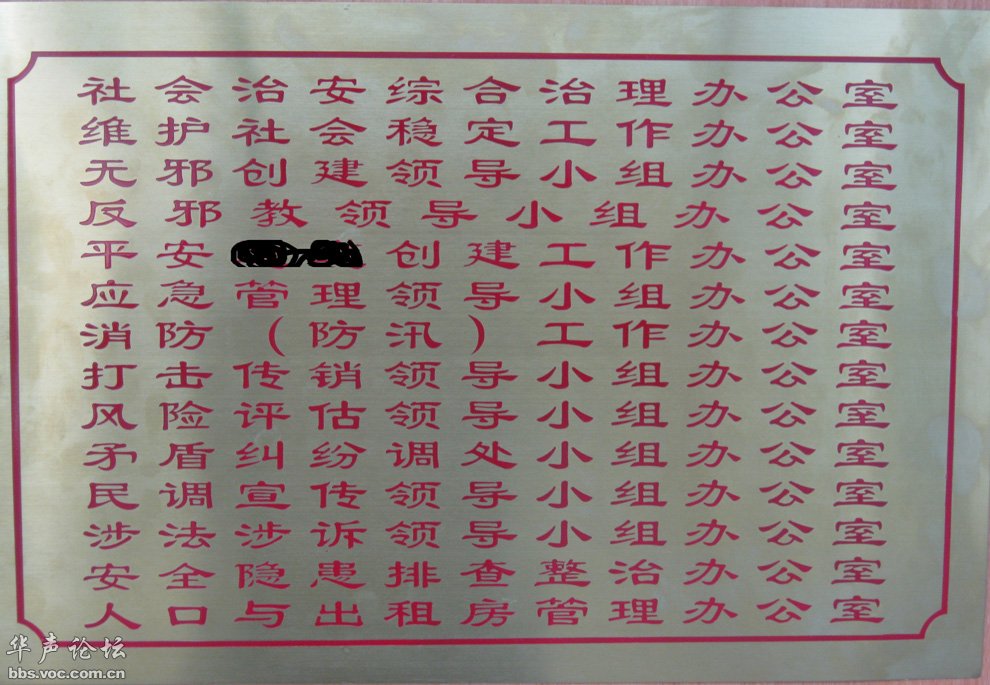 社会治安综合治理办公室
维护社会稳定工作办公室
无邪创建领导小组办公室
反邪教领导小组办公室
平安创建工作办公室
应急管理领导小组办公室
消防（防汛）工作办公室
打击传销领导小组办公室
风险评估领导小组办公室
矛盾纠纷调处小组办公室
民调宣传领导小组办公室
涉法涉诉领导小组办公室
安全隐患排查整治办公室
人口与出租房管理办公室
华声论坛
bbs.voc.com.cn